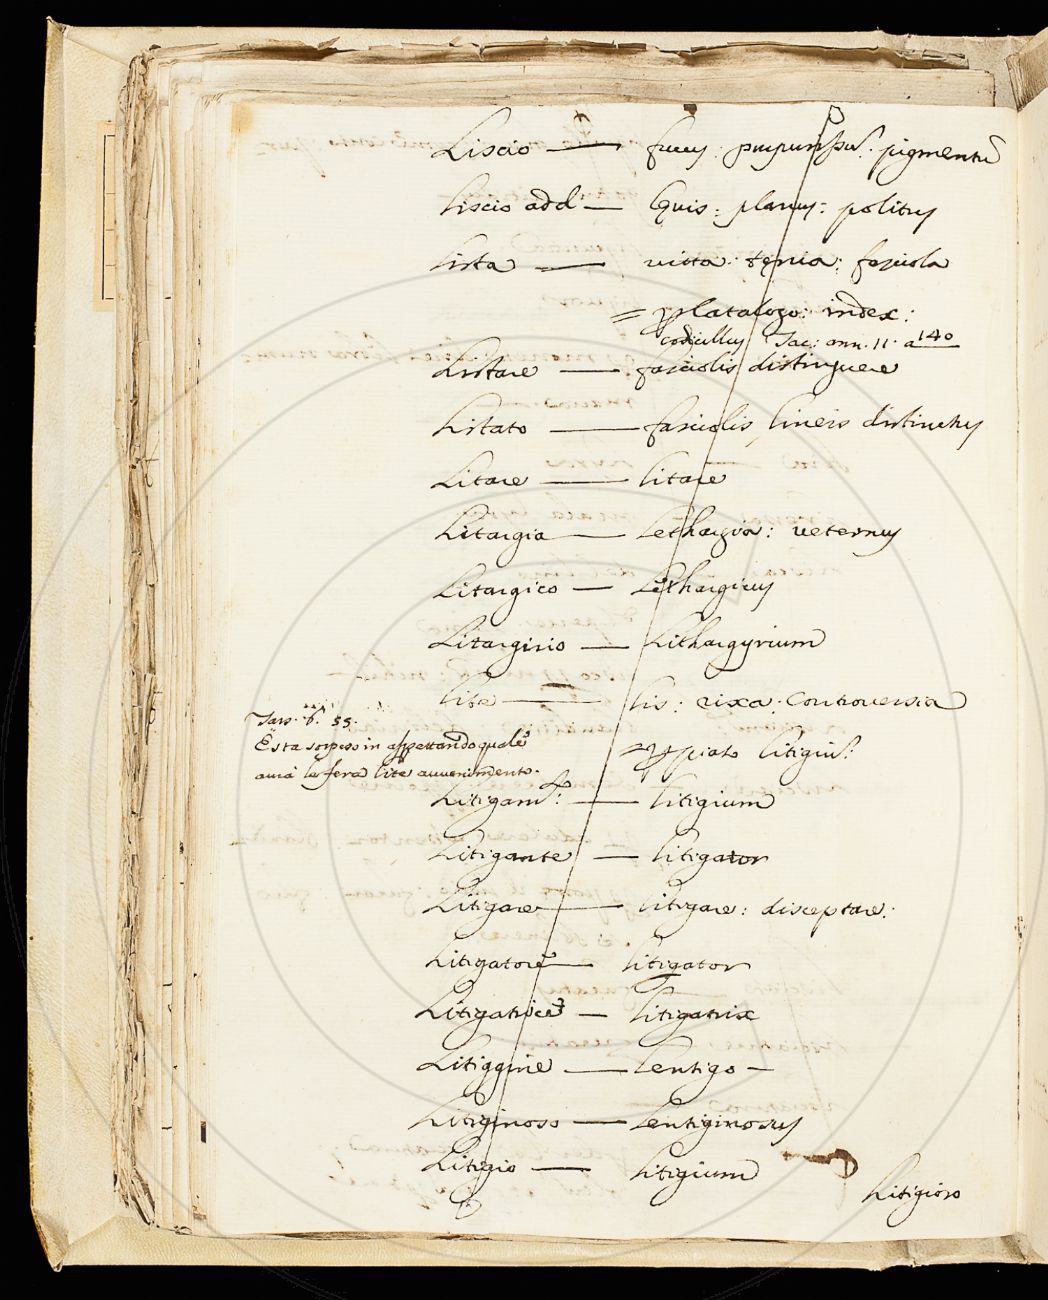 Liscio — fucus: purpurissū: pigmentū
Liscio add — lęuis: planus: politus
Lista — vitta: tęnia: fasciola
= catalogo: index:
codicillus Tac: ann. 11. a 140
Listare — fasciolis distinguere
Listato — fasciolis, lineis distinctus
Litare — litare
Litargia — Lethargia: veternus
Litargico — Lethargicus
Litargirio — Lithargyrium
lite — lis: rixa: Controuersia
Tass. 6. 55.
E sta sospeso in aspettando quale
aurà la fera lite auuenimento.
piato litigiū:
Litigamto: — litigium
Litigante — litigator
Litigare — litigare: disceptare:
Litigatore — litigator
Litigatrice — litigatrix
Litiggine — lentigo —
Litiginoso — lentiginosus
Litigio — litigium
Litigioso